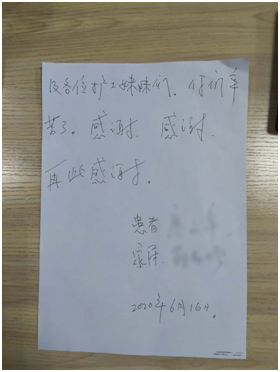 及各位护工妹妹们，你们辛
苦了。感谢 感谢
再此感谢。
患者
家属
2020年6月16日。